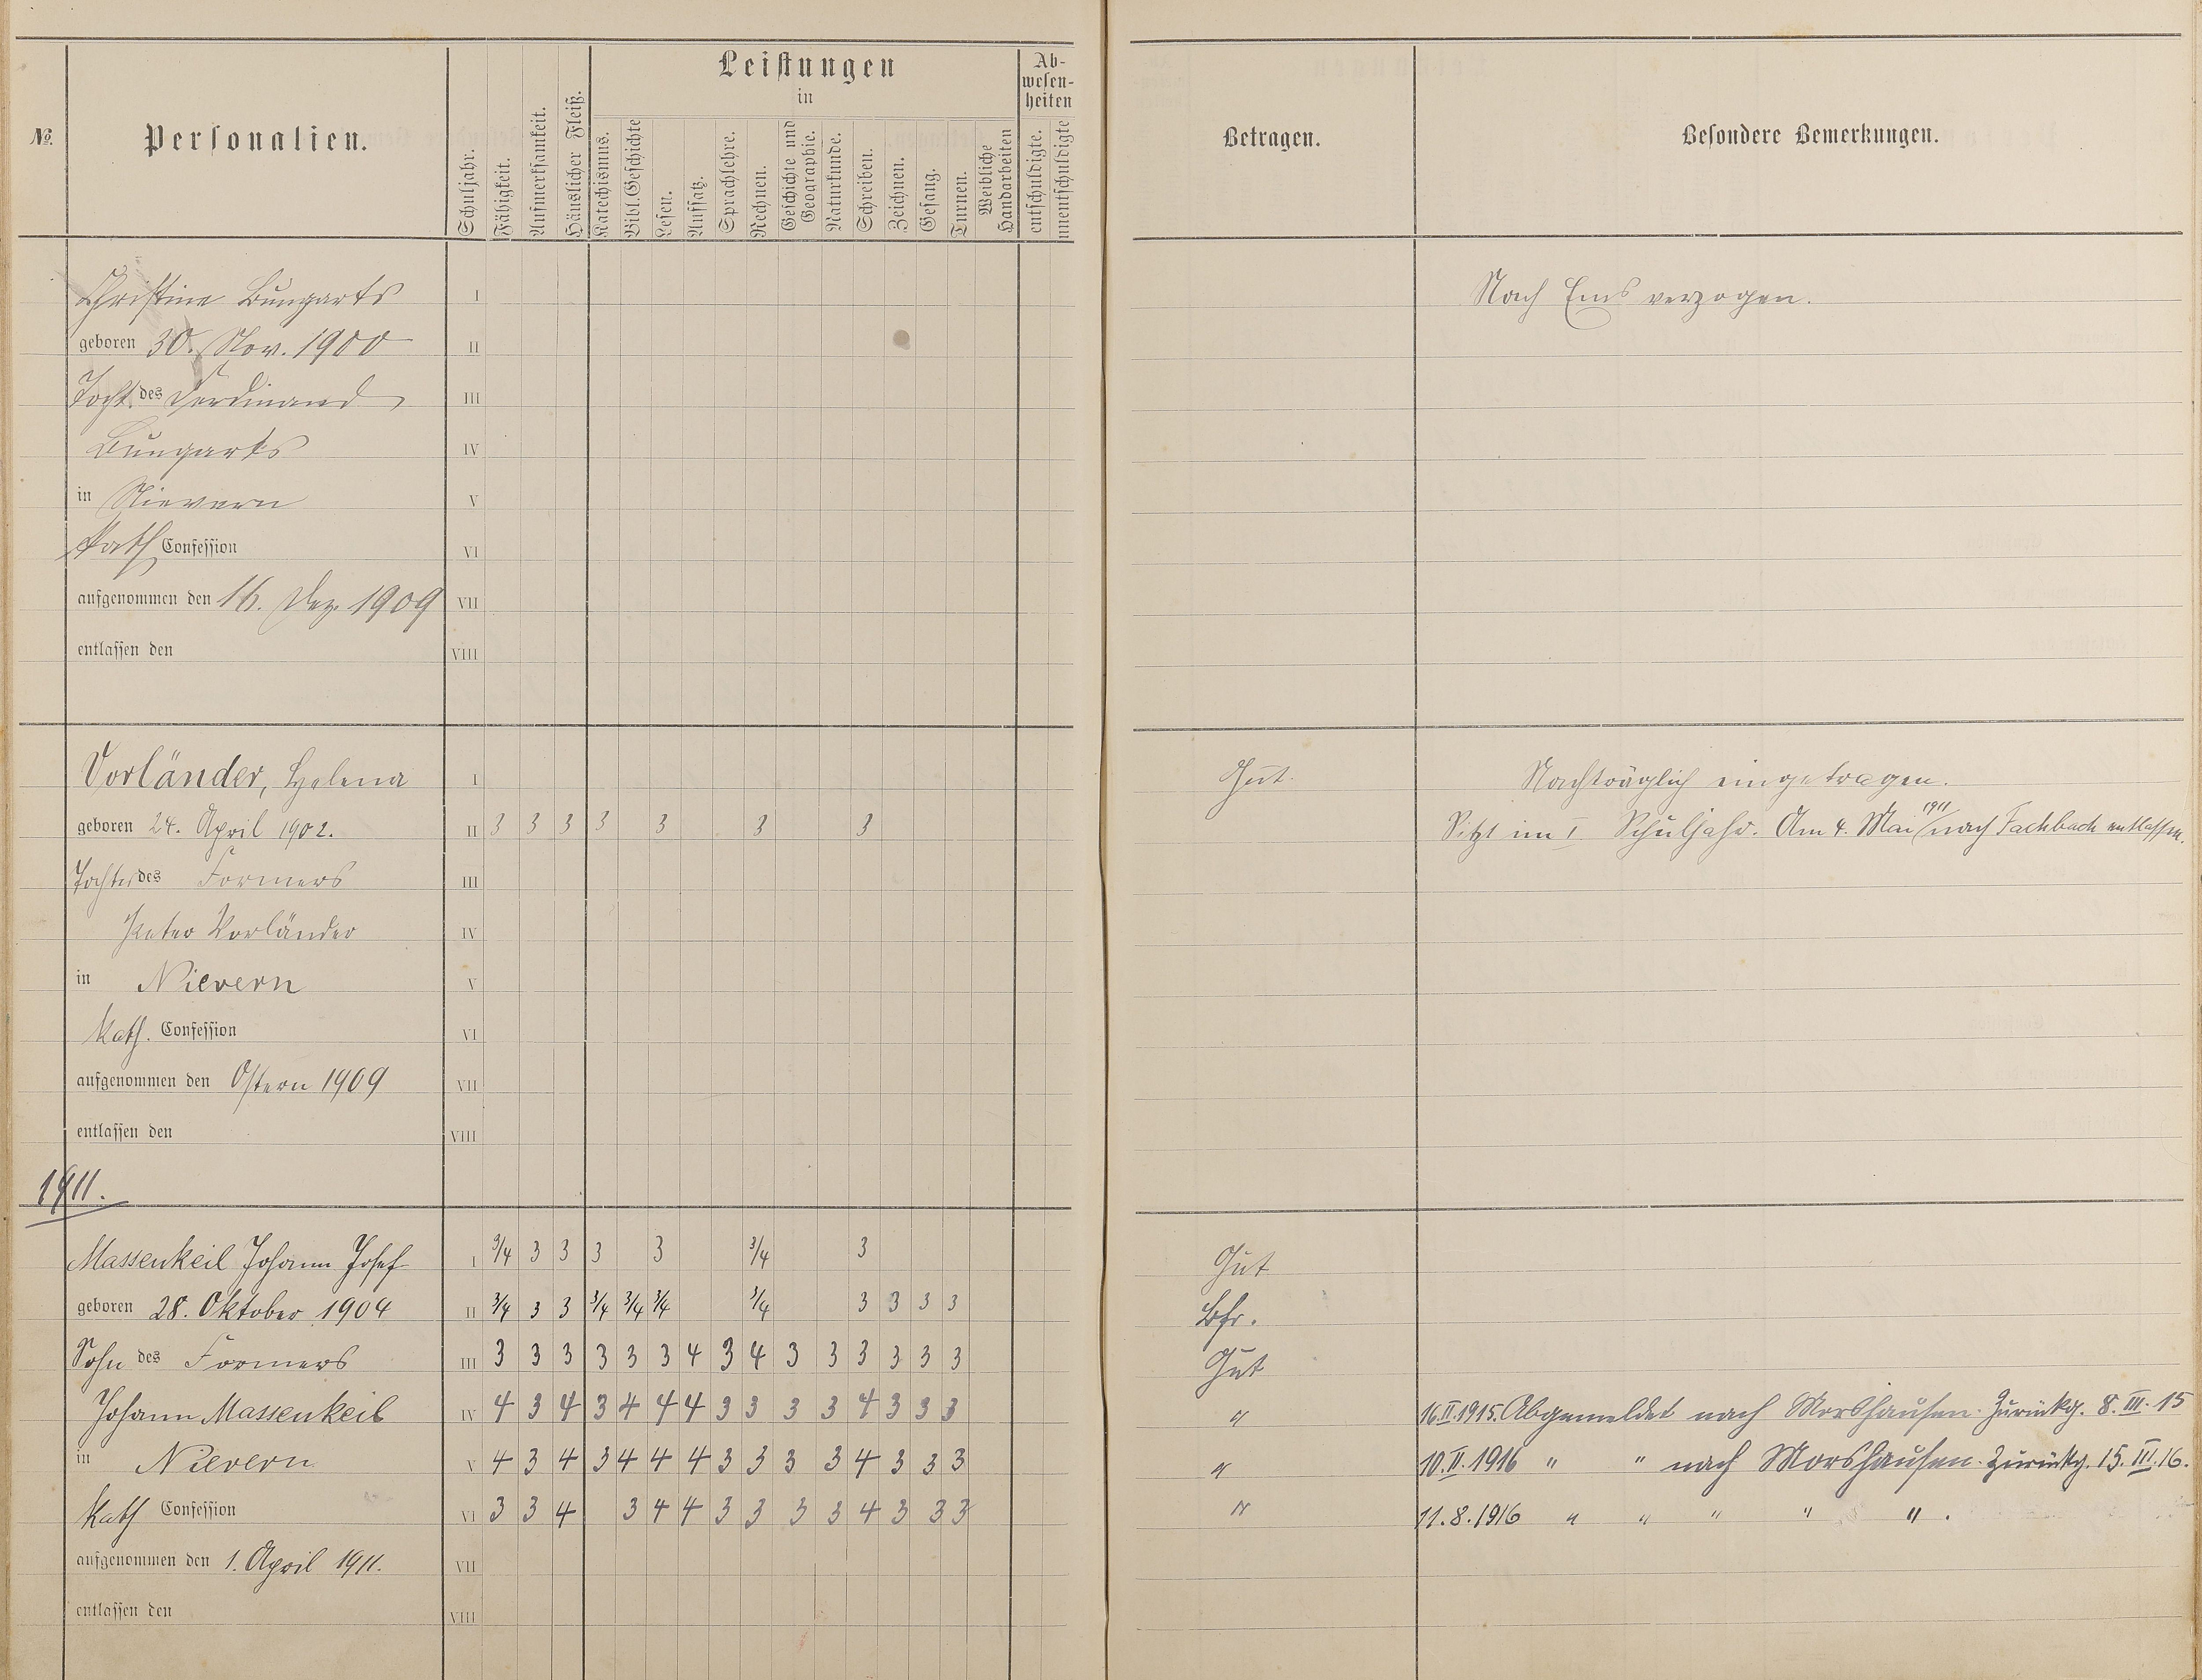 No. Personalien. Schuljahr. Fähigkeit. Aufmerksamkeit. Häuslicher Fleiß. Leistungen in Katechismus. Bibl. Geschichte Lesen. Aufsatz. Sprachlehre. Rechnen. Geschichte und Geographie. Naturkunde. Schreiben. Zeichnen. Gesang. Turnen. Weibliche Handarbeiten Ab-wesen-heiten entschuldigte. unentschuldigte Betragen. Besondere Bemerkungen.
Christine Bungarts I Nach Ems verzogen.
geboren 30. Nov. 1900 II
Tocht. des Ferdinand III
Bungarts IV
in Nievern V
Kath Confession VI
aufgenommen den 16. Dez. 1909 VII
entlassen den VIII
Vorländer, Helena I Gut. Nachträglich eingetragen.
geboren 24. April 1902. II 3 3 3 3 3 3 3 Sitzt im I Schuljahr. Am 4. Mai 1911 nach Fachbach entlassen.
Tochter des Formers III
Peter Vorländer IV
in Nievern V
Kath. Confession VI
aufgenommen den Ostern 1909 VII
entlassen den VIII
1911.
Massenkeil Johann Josef I 3/4 3 3 3 3 3/4 3 Gut
geboren 28. Oktober 1904 II 3/4 3 3 3/4 3/4 3/4 3/4 3 3 3 3 Bfr.
Sohn des Formers III 3 3 3 3 3 3 4 3 4 3 3 3 3 3 3 Gut
Johann Massenkeil IV 4 3 4 3 4 4 4 3 3 3 3 4 3 3 3 " 16.II.1915. Abgemeldet nach Morshausen. Zurückg. 8.III.15
in Nievern V 4 3 4 3 4 4 4 3 3 3 3 4 3 3 3 " 10.II.1916 " " nach Morshausen. Zurückg. 15.III.16.
Kath Confession VI 3 3 4 3 4 4 3 3 3 3 4 3 3 3 " 11.8.1916 " " " " " .
aufgenommen den 1. April 1911. VII
entlassen den VIII